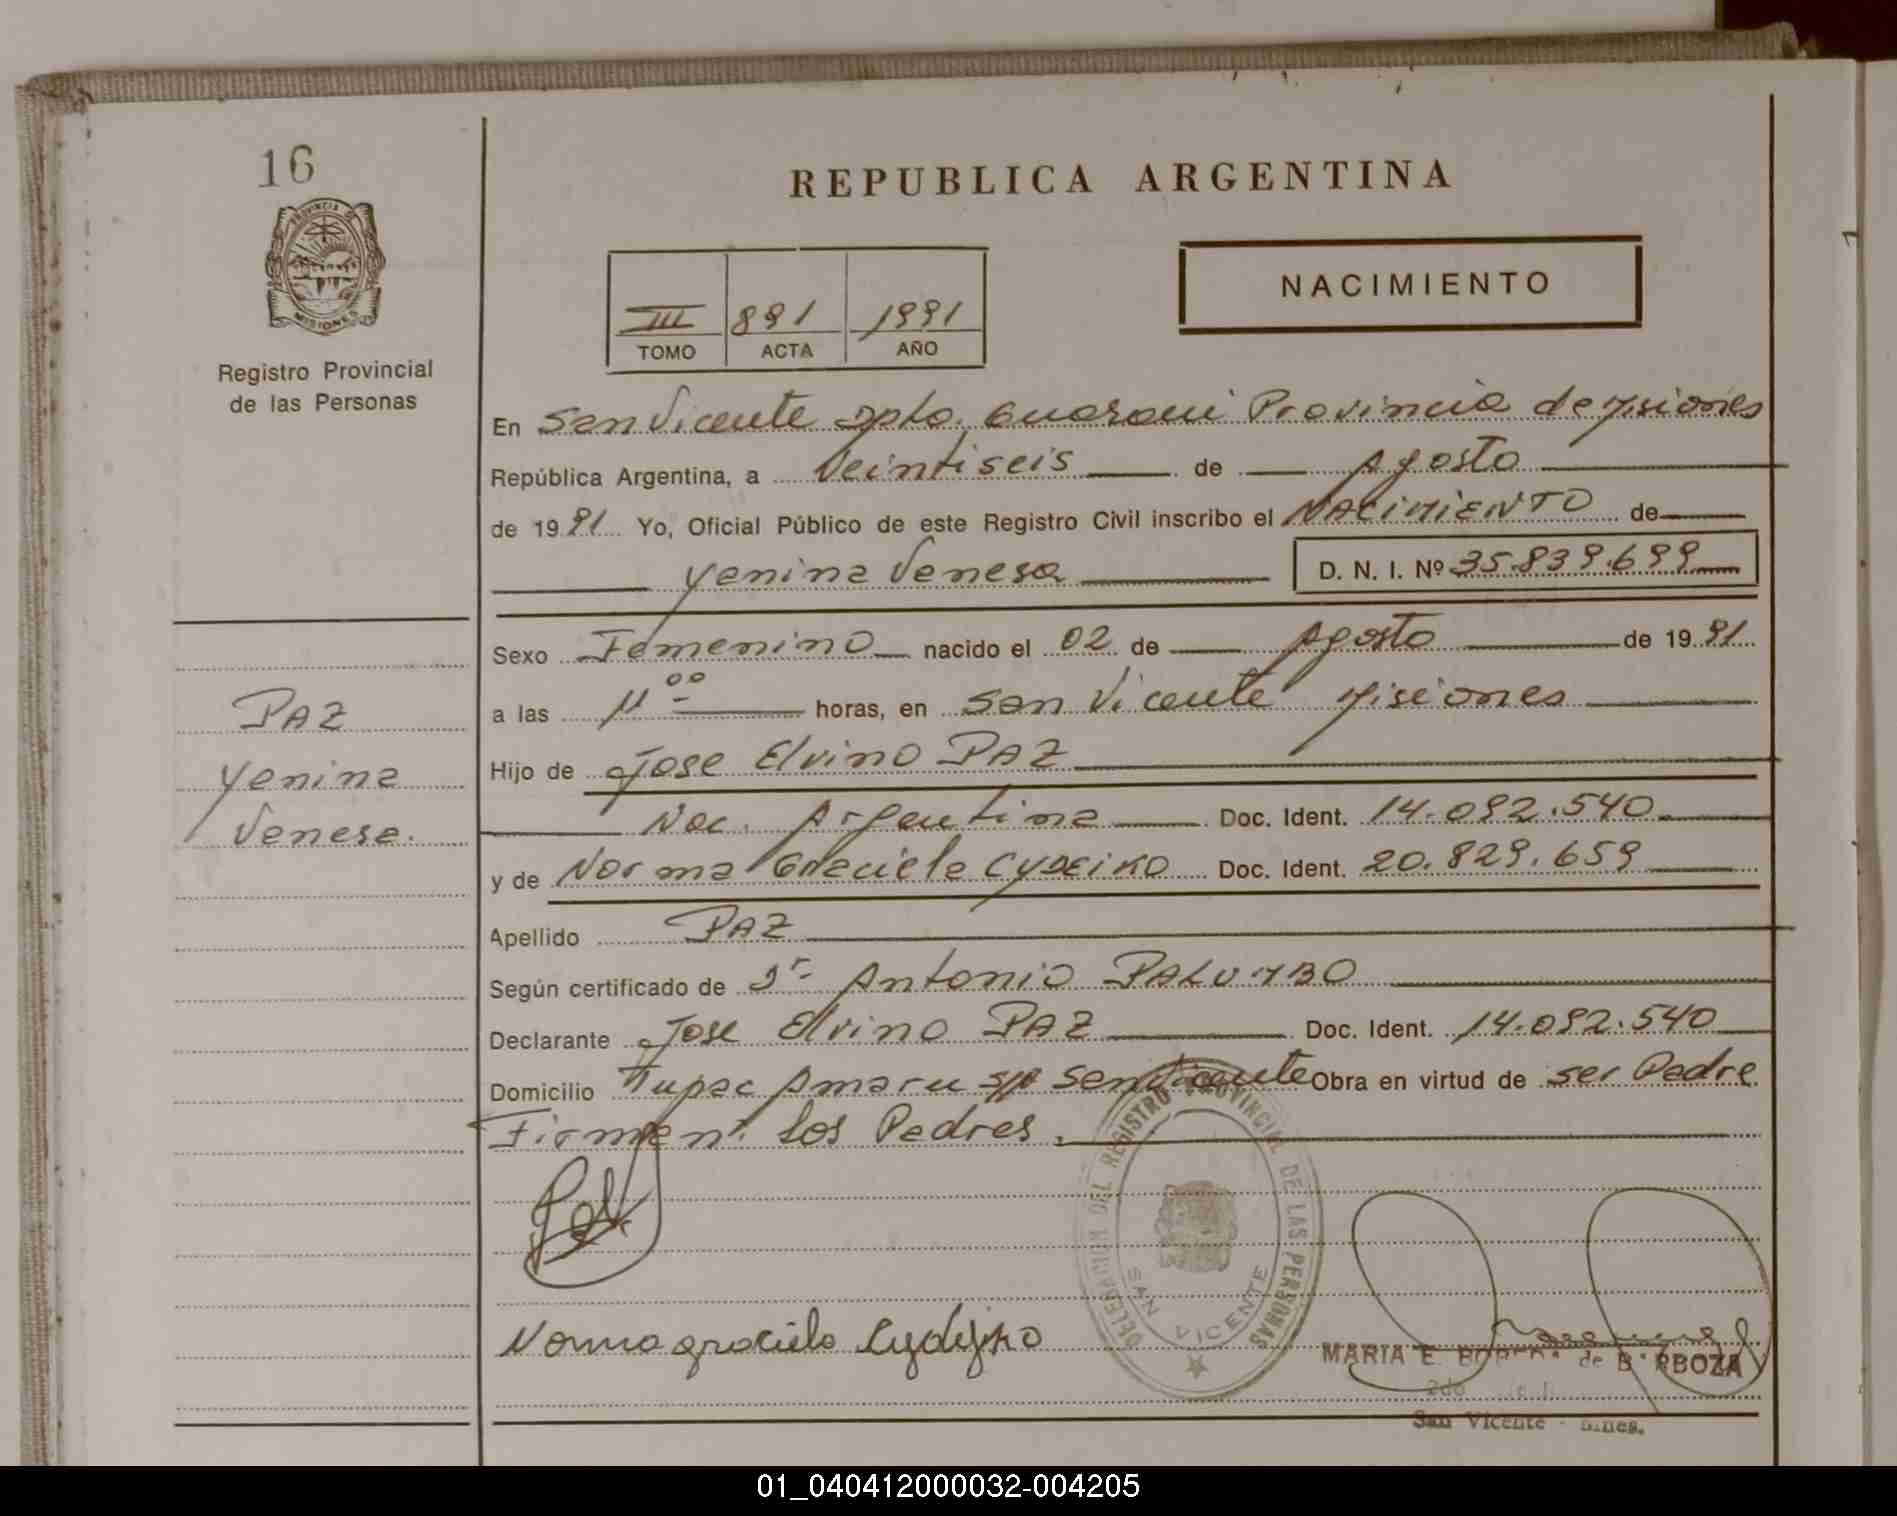 16
PROVINCIA DE
MISIONES
Registro Provincial
de las Personas
PAZ
Yenina
Vanesa.
REPUBLICA ARGENTINA
III 891 1991
TOMO ACTA AÑO
NACIMIENTO
En San Vicente Dpto. Guarani Provincia de Misiones
República Argentina, a Veintiseis de Agosto
de 1991 Yo, Oficial Público de este Registro Civil inscribo el NACIMIENTO de
Yenina Vanesa D. N. I. Nº 35.839.699
Sexo Femenino nacido el 02 de Agosto de 1991
a las 11 00 horas, en San Vicente Misiones
Hijo de Jose Elvino PAZ
Nac. Argentina Doc. Ident. 14.092.540
y de Norma Graciela Cydeiko Doc. Ident. 20.829.659
Apellido PAZ
Según certificado de Dr Antonio PALUMBO
Declarante Jose Elvino PAZ Doc. Ident. 14.092.540
Domicilio Tupac Amaru San Vicente Obra en virtud de ser Padre
Firman los Padres.
DELEGACION DEL REGISTRO PROVINCIAL DE LAS PERSONAS
SAN VICENTE
Norma graciela Cydejko
MARIA E. de BARBOZA
2do
San Vicente - Mnes.
01_040412000032-004205